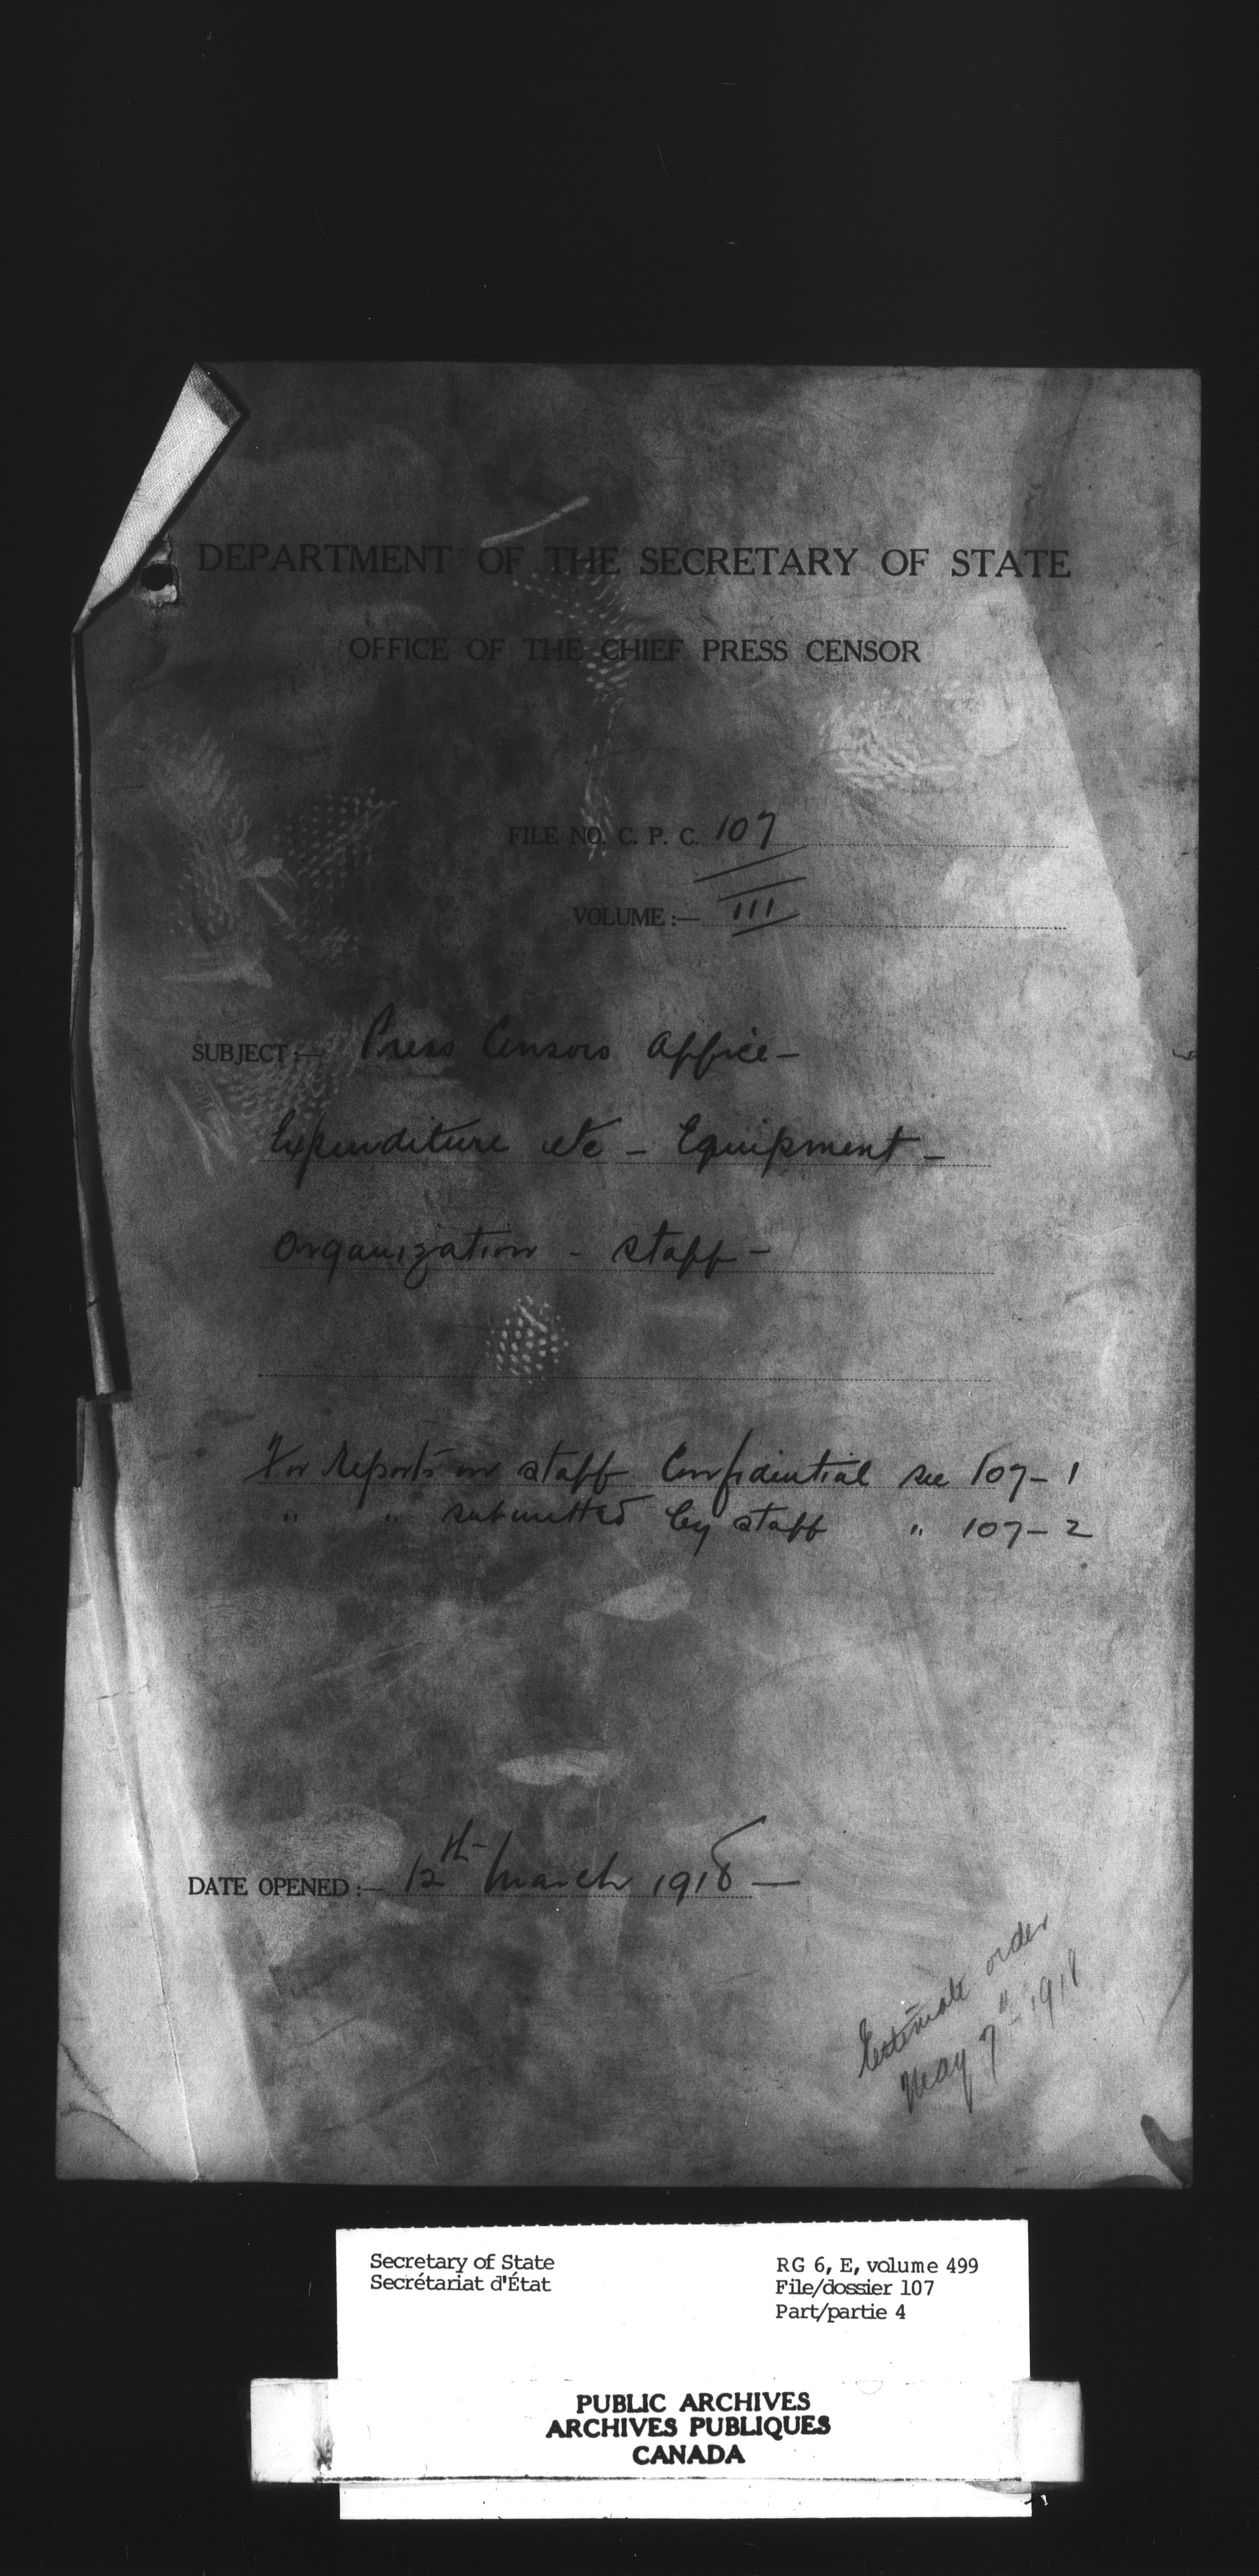 DEPARTMENT OF THE SECRETARY OF STATE
OFFICE OF THE CHIEF PRESS CENSOR
FILE NO. C. P. C. 107
VOLUME :— III
SUBJECT :— Press Censors Office —
Expenditure etc — Equipment —
Organization - Staff —
For Reports on staff Confidential see 107 - 1
" " submitted by staff " 107 - 2
DATE OPENED :— 12th March 1918 —
Estimate order
May 7th 1918
Secretary of State
Secrétariat d'État
RG 6, E, volume 499
File/dossier 107
Part/partie 4
PUBLIC ARCHIVES
ARCHIVES PUBLIQUES
CANADA